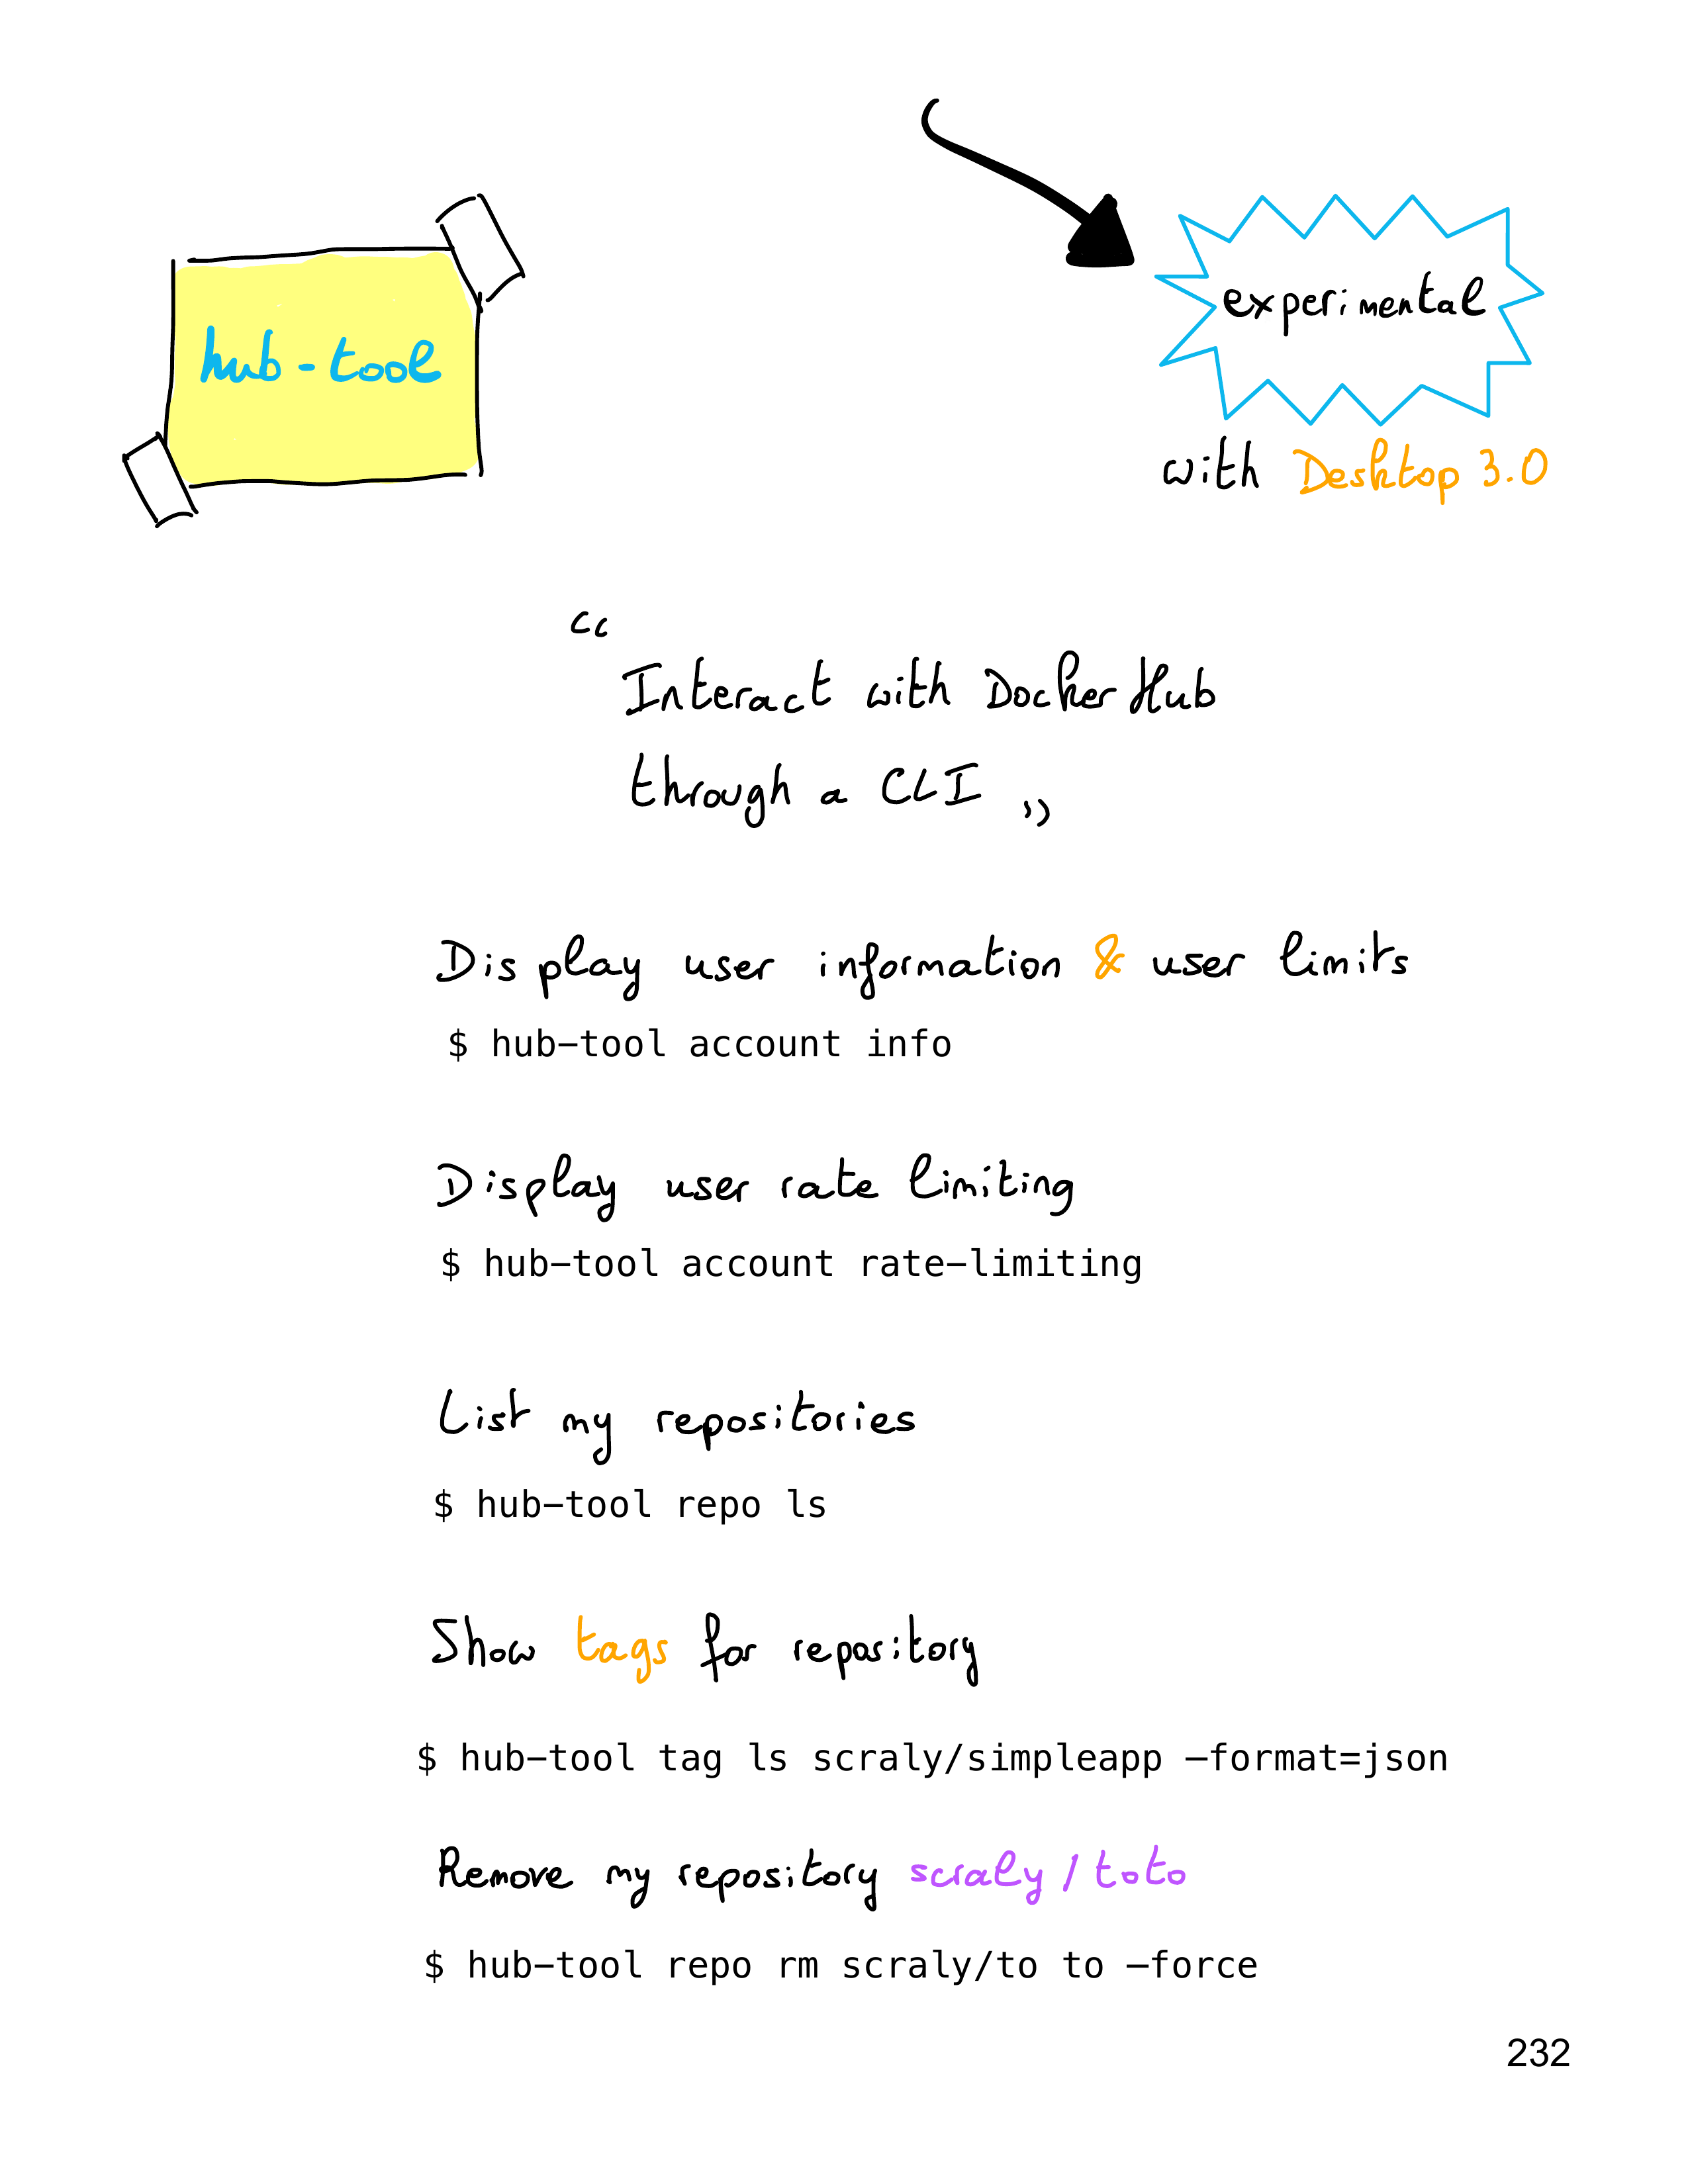 hub-tool
experimental
with Desktop 3.0
“
Interact with Docker Hub
through a CLI ”
Display user information & user limits
$ hub-tool account info
Display user rate limiting
$ hub-tool account rate-limiting
List my repositories
$ hub-tool repo ls
Show tags for repository
$ hub-tool tag ls scraly/simpleapp —format=json
Remove my repository scraly/toto
$ hub-tool repo rm scraly/to to —force
232